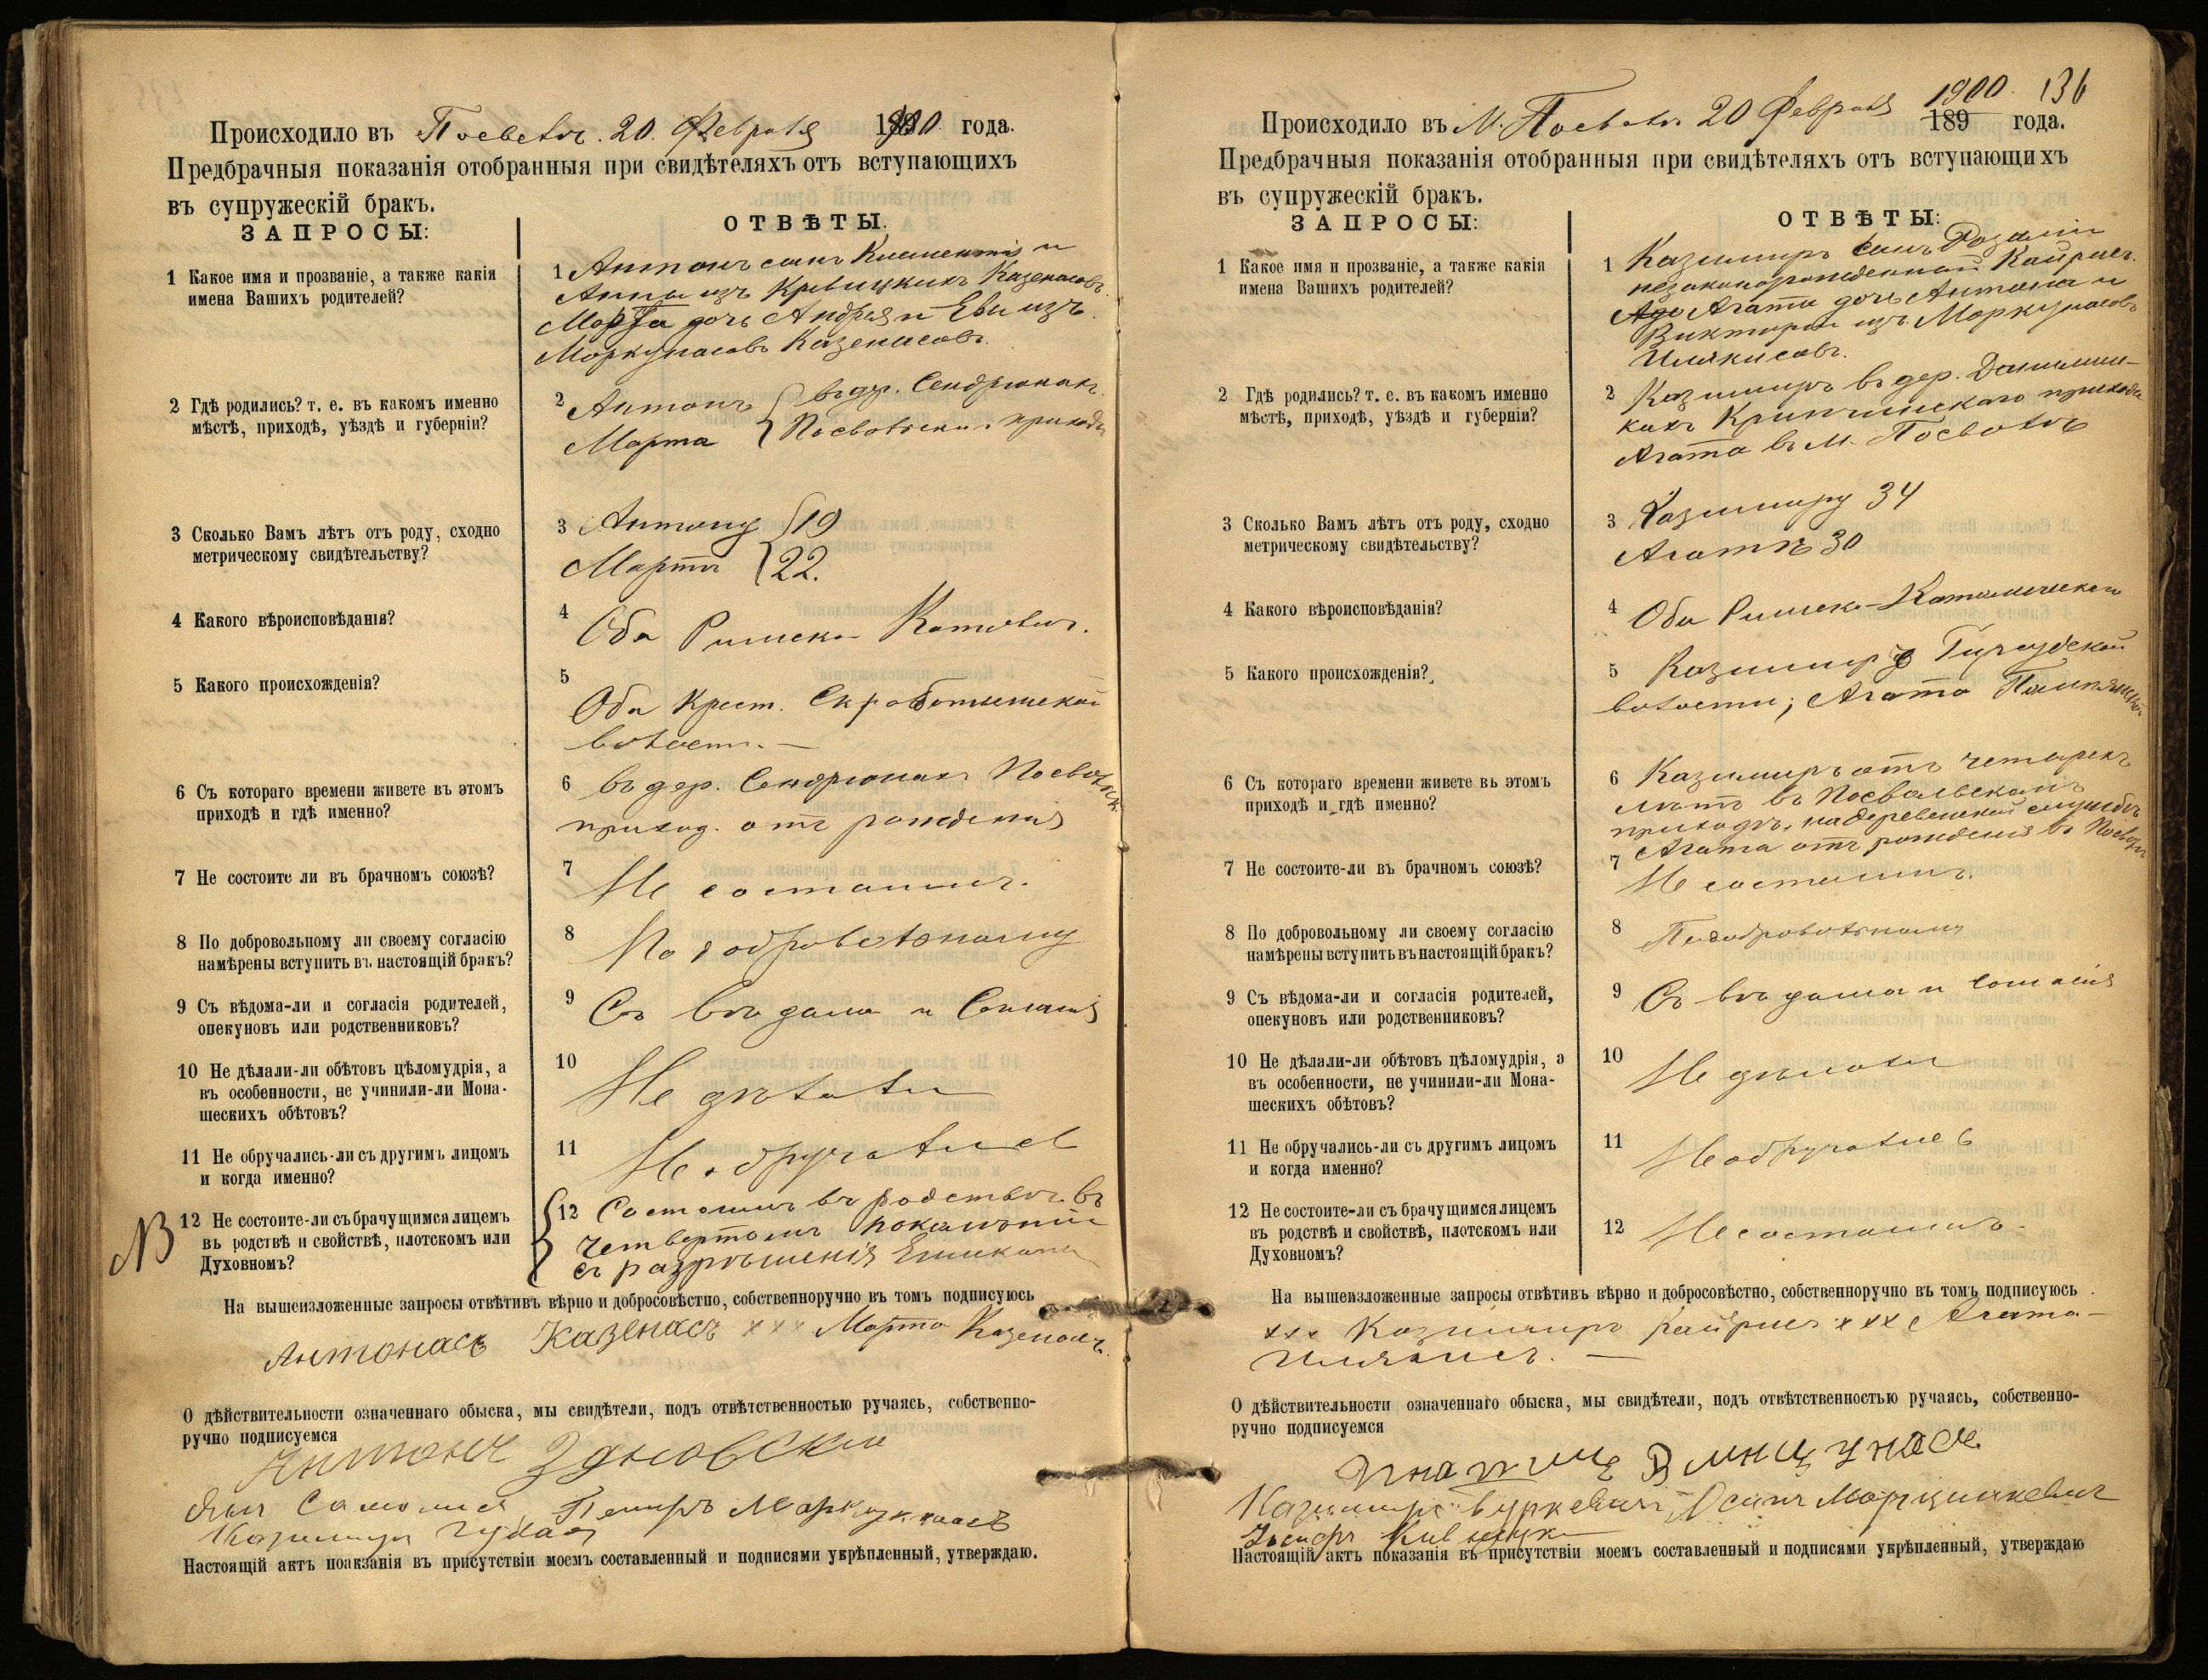 Происходило въ Посволѣ. 20. Февраля 1900. года.
Предбрачныя показанія отобранныя при свидѣтеляхъ отъ вступающихъ
въ супружескій бракъ.
ЗАПРОСЫ:
ОТВѢТЫ.
1 Какое имя и прозваніе, а также какія
имена Вашихъ родителей?
1 Антонъ сынъ Климентія и
Анны изъ Кривицкихъ Казенасовъ.
Марта дочь Андрея и Евы изъ
Моркунасовъ Казенасовъ.
2 Гдѣ родились? т. е. въ какомъ именно
мѣстѣ, приходѣ, уѣздѣ и губерніи?
2 Антонъ въ дер.
Марта прихода
3 Сколько Вамъ лѣтъ отъ роду, сходно
метрическому свидѣтельству?
3 Антону 19
Мартѣ 22.
4 Какого вѣроисповѣданія?
4 Оба Римско Католич.
5 Какого происхожденія?
5 Оба Крест.
волости. —
6 Съ котораго времени живете въ этомъ
приходѣ и гдѣ именно?
6 въ дер.
приход. отъ рожденія
7 Не состоите ли въ брачномъ союзѣ?
7 Не состоимъ.
8 По добровольному ли своему согласію
намѣрены вступить въ настоящій бракъ?
8 По добровольному
9 Съ вѣдома-ли и согласія родителей,
опекуновъ или родственниковъ?
9 Съ вѣдома и Согласія
10 Не дѣлали-ли обѣтовъ цѣломудрія, а
въ особенности, не учинили-ли Мона-
шескихъ обѣтовъ?
10 Не дѣлали
11 Не обручались-ли съ другимъ лицомъ
и когда именно?
11 Не обручались
NB 12 Не состоите-ли съ брачущимся лицемъ
въ родствѣ и свойствѣ, плотскомъ или
Духовномъ?
12 Состоимъ въ родствѣ въ
четвертомъ поколѣніи
съ разрѣшенія Епископа
На вышеизложенные запросы отвѣтивъ вѣрно и добросовѣстно, собственноручно въ томъ подписуюсь
Антонасъ Казенасъ xxx Марта Казенасъ.
О дѣйствительности означеннаго обыска, мы свидѣтели, подъ отвѣтственностью ручаясь, собственно-
ручно подписуемся
Антонъ
Петръ
Казимиръ
Настоящій актъ поакзанія въ присутствіи моемъ составленный и подписями укрѣпленный, утверждаю.
136
Происходило въ М. Посволѣ 20 Февраля 1900. 189 года.
Предбрачныя показанія отобранныя при свидѣтеляхъ отъ вступающихъ
въ супружескій бракъ.
ЗАПРОСЫ:
ОТВѢТЫ:
1 Какое имя и прозваніе, а также какія
имена Вашихъ родителей?
1 Казимиръ сынъ Розаліи
незаконорожденный Кайрисъ.
Агата дочь Антона и
Викторіи изъ Моркунасовъ
2 Гдѣ родились? т. е. въ какомъ именно
мѣстѣ, приходѣ, уѣздѣ и губерніи?
2 Казимиръ въ дер. Данилиш-
кахъ Кринчинскаго прихода
Агата въ М. Посволѣ
3 Сколько Вамъ лѣтъ отъ роду, сходно
метрическому свидѣтельству?
3 Казимиру 34
Агатѣ 30
4 Какого вѣроисповѣданія?
4 Оба Римско-Католическаго
5 Какого происхожденія?
5 Казимиръ
волости; Агата
6 Съ котораго времени живете въ этомъ
приходѣ и гдѣ именно?
6 Казимиръ отъ четырехъ
лѣтъ въ Посвольскомъ
приходѣ, на деревенской службѣ
Агата отъ рожденія въ Посволѣ
7 Не состоите-ли въ брачномъ союзѣ?
7 Не состоимъ.
8 По добровольному ли своему согласію
намѣрены вступить въ настоящій бракъ?
8 По добровольному
9 Съ вѣдома-ли и согласія родителей,
опекуновъ или родственниковъ?
9 Съ вѣдома и согласія
10 Не дѣлали-ли обѣтовъ цѣломудрія, а
въ особенности, не учинили-ли Мона-
шескихъ обѣтовъ?
10 Не дѣлали
11 Не обручались-ли съ другимъ лицомъ
и когда именно?
11 Не обручались
12 Не состоите-ли съ брачущимся лицемъ
въ родствѣ и свойствѣ, плотскомъ или
Духовномъ?
12 Не состоимъ
На вышеизложенные запросы отвѣтивъ вѣрно и добросовѣстно, собственноручно въ томъ подписуюсь
xxx Казимиръ Кайрисъ xxx Агата
О дѣйствительности означеннаго обыска, мы свидѣтели, подъ отвѣтственностью ручаясь, собственно-
ручно подписуемся
Казимиръ Осипъ
Настоящій актъ показанія въ присутствіи моемъ составленный и подписями укрѣпленный, утверждаю